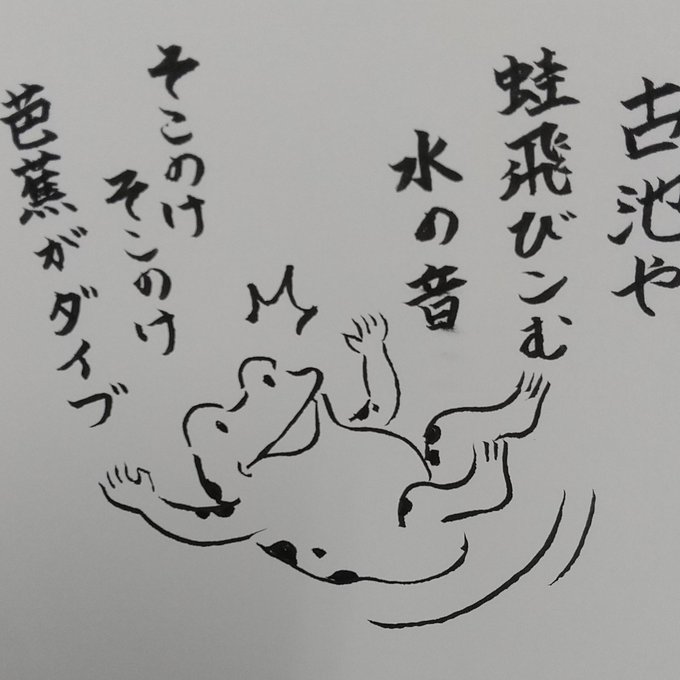 古池や
蛙飛びこむ
水の音
そこのけ
そこのけ
芭蕉がダイブ